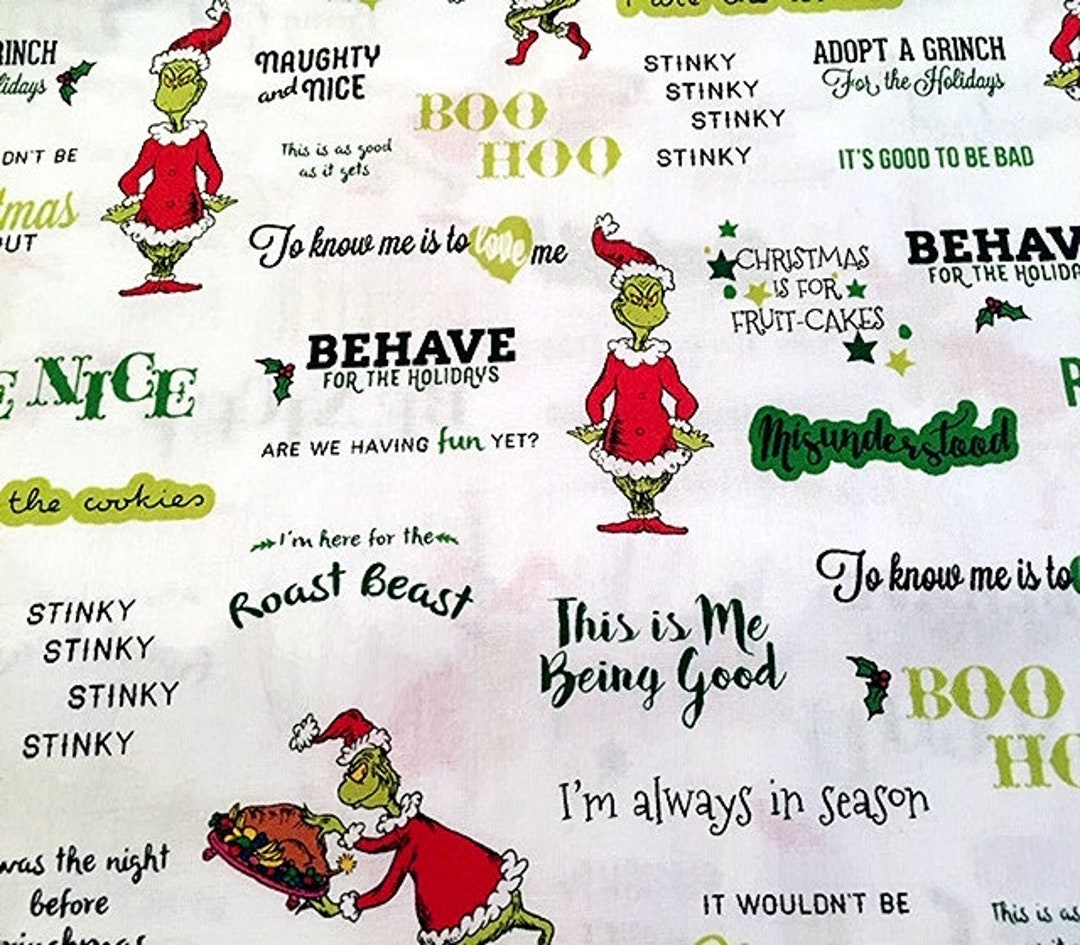 RINCH
lidays
NAUGHTY
and NICE
BOO
HOO
STINKY
STINKY
STINKY
STINKY
ADOPT A GRINCH
For the Holidays
DN'T BE
tmas
UT
This is as good
as it gets
IT'S GOOD TO BE BAD
To know me is to love me
CHRISTMAS
IS FOR
FRUIT-CAKES
BEHAV
FOR THE HOLIDA
E NICE
BEHAVE
FOR THE HOLIDAYS
ARE WE HAVING fun YET?
Misunderstood
the cookies
I'm here for the
Roast Beast
To know me is to
STINKY
STINKY
STINKY
STINKY
This is Me
Being Good
BOO
HO
I'm always in season
was the night
before
IT WOULDN'T BE
This is as